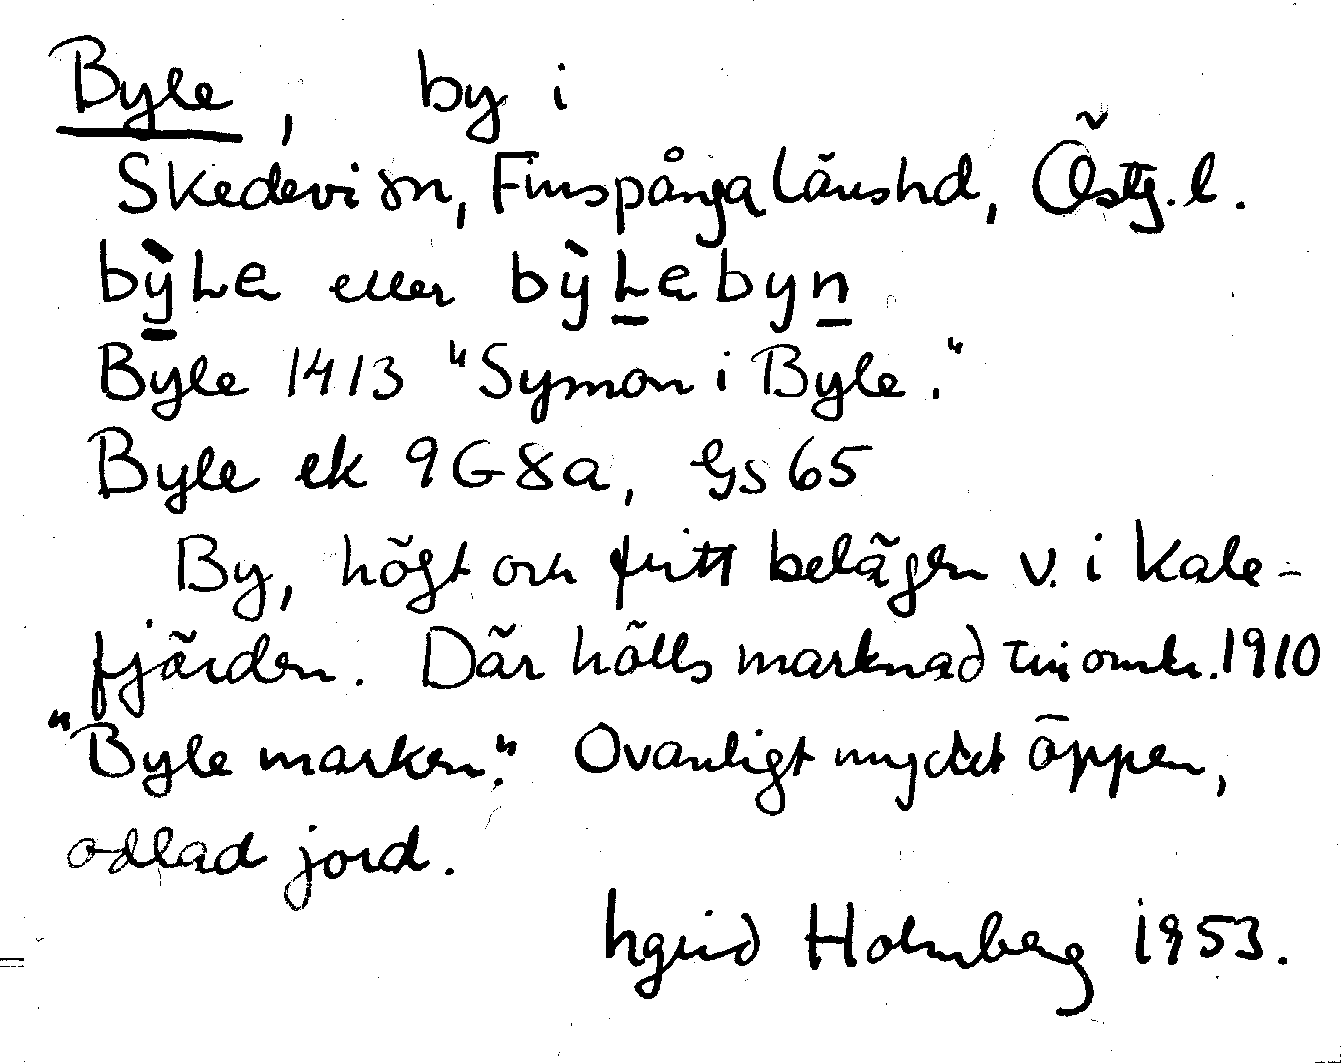 Byle, by i
Skedevi sn, Finspånga länshd, Östg. l.
bỳLe eller bỳLebyn
Byle 1413 "Symon i Byle."
Byle ek 9G8a, Gs 65
By, högt och fritt belägen v. i Kale-
fjärden. Där hölls marknad till omkr. 1910
"Byle marken". Ovanligt mycket öppen,
odlad jord.
Ingrid Holmberg 1953.